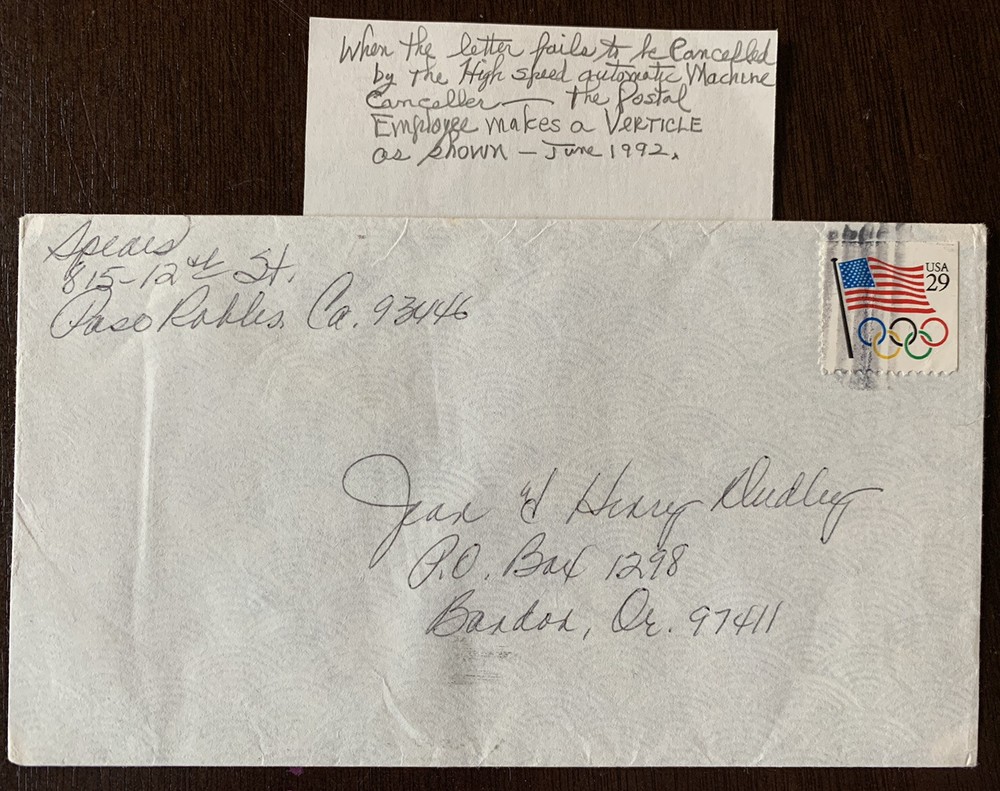 When the letter fails to be Cancelled
by the High speed automatic Machine
Canceller — the Postal
Employee makes a VERTICLE
as shown – June 1992.
Spears
815-12th St.
Paso Robles, Ca. 93446
USA
29
Jean & Henry Dudley
P.O. Box 1298
Bandon, Or. 97411